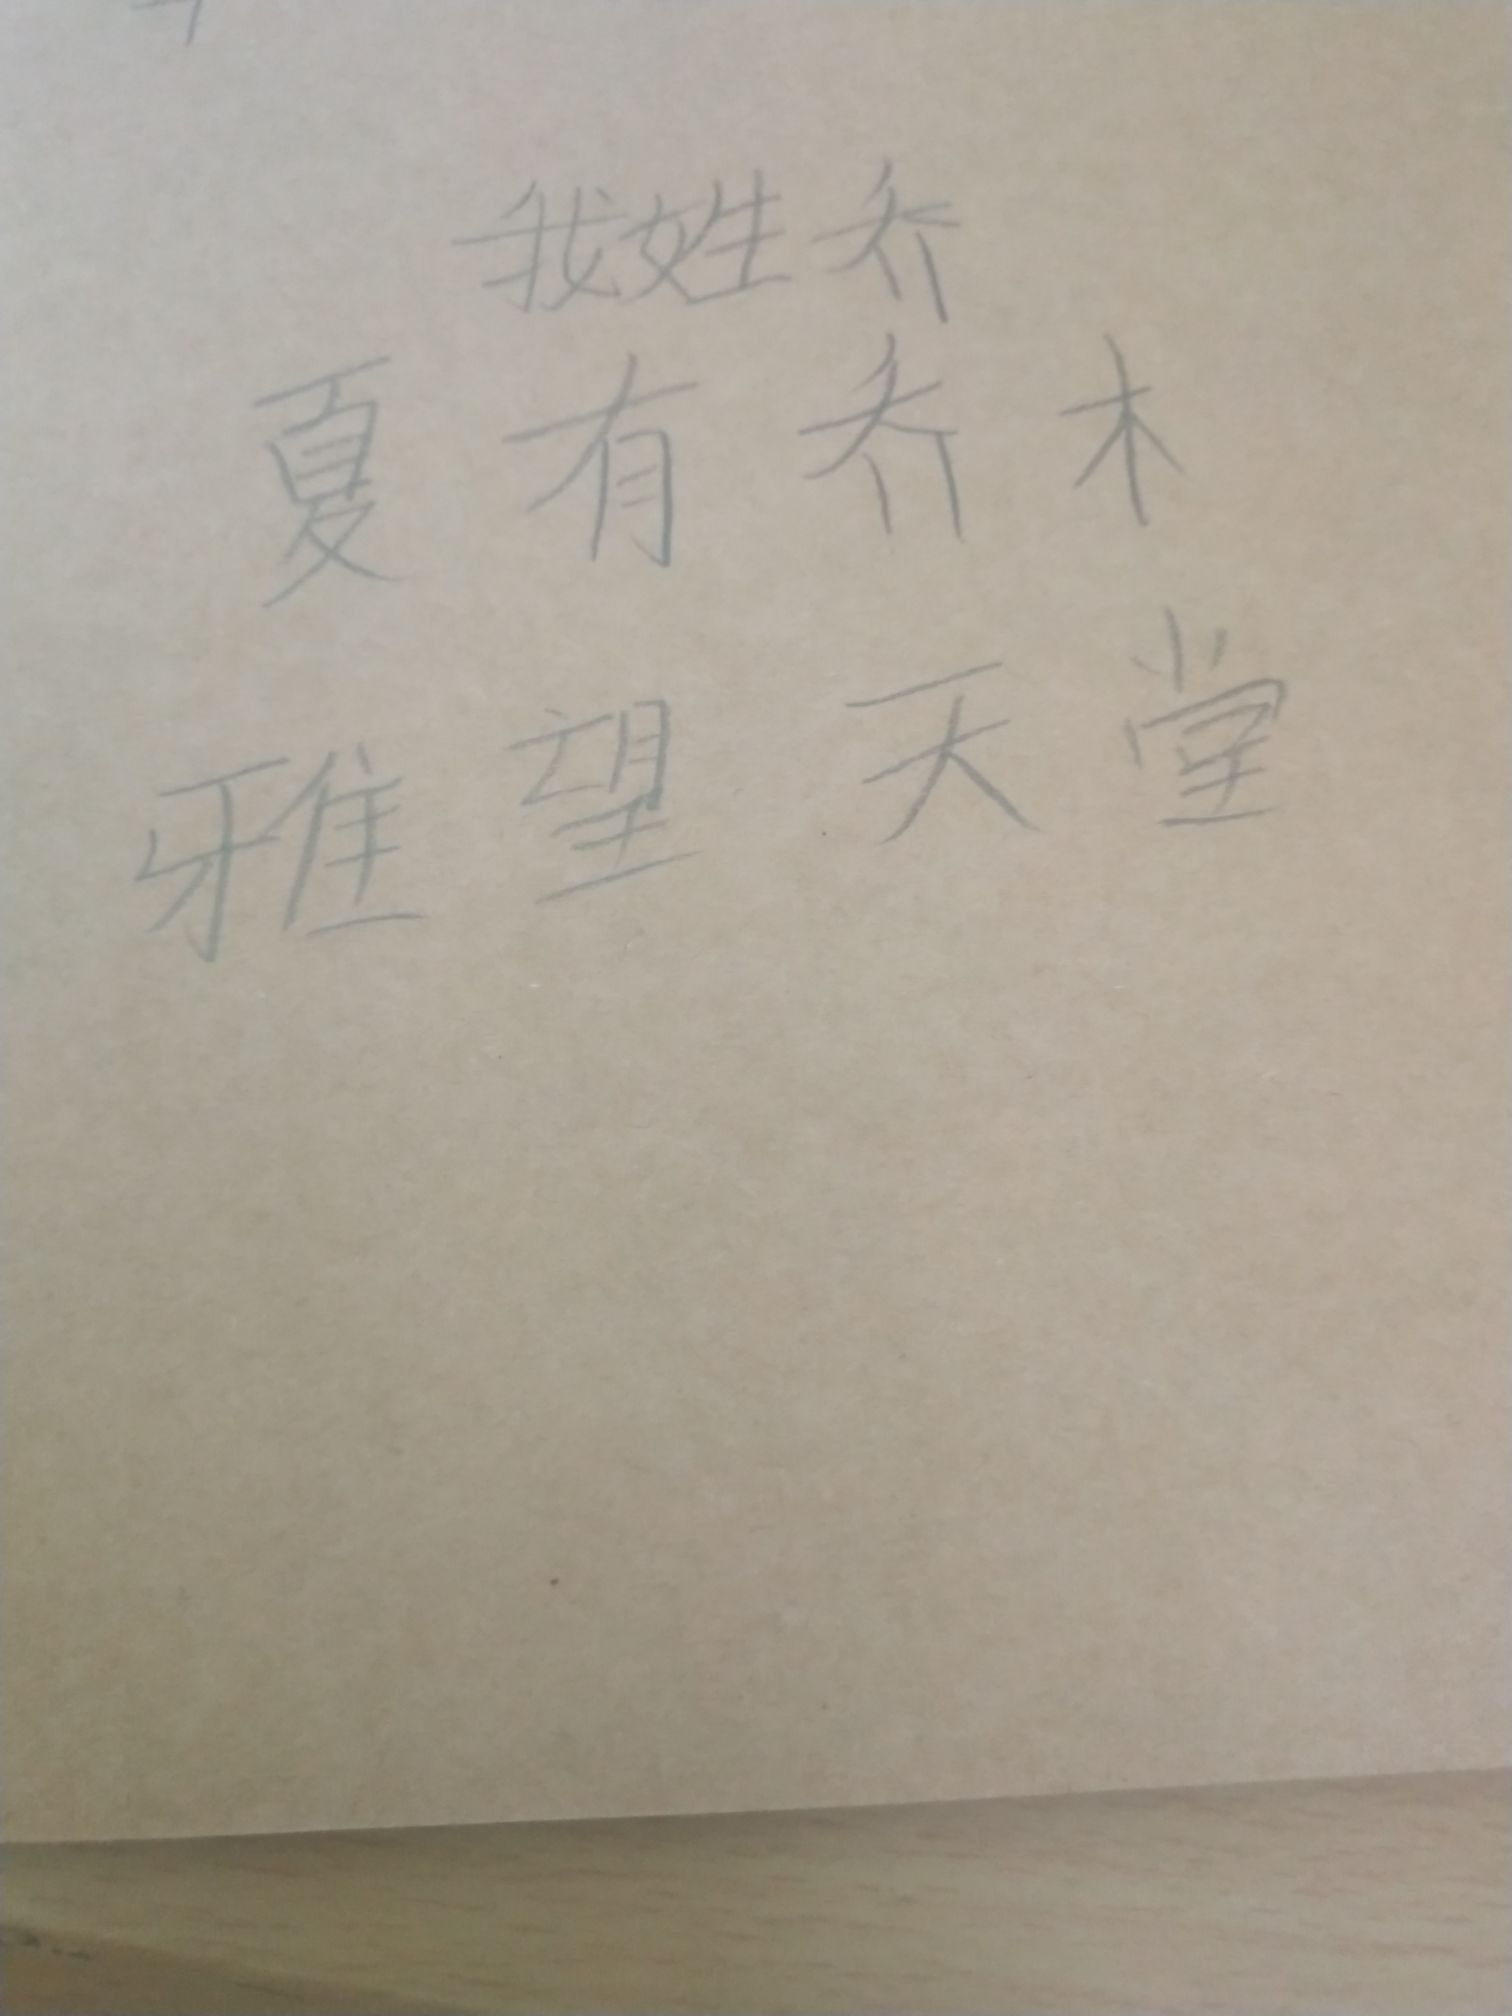 我姓乔
夏有乔木
雅望天堂